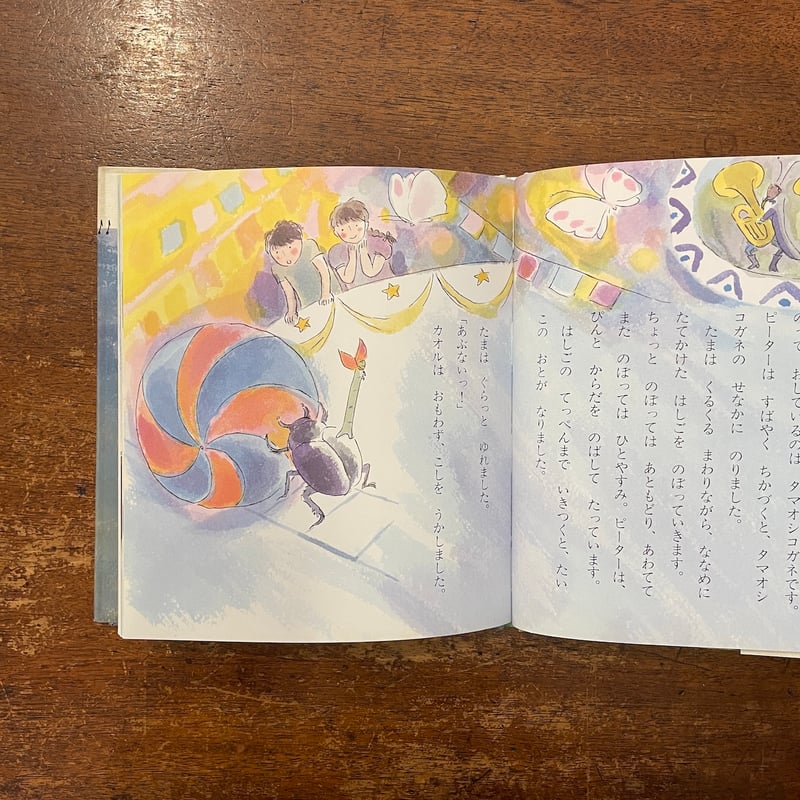 おしているのは タマオシコガネです。
ピーターは すばやく ちかづくと、タマオシ
コガネの せなかに のりました。
たまは くるくる まわりながら、ななめに
たてかけた はしごを のぼっていきます。
ちょっと のぼっては あともどり、あわてて
また のぼっては ひとやすみ。ピーターは、
ぴんと からだを のばして たっています。
はしごの てっぺんまで いきつくと、たい
この おとが なりました。
たまは ぐらっと ゆれました。
「あぶないっ！」
カオルは おもわず、こしを うかしました。